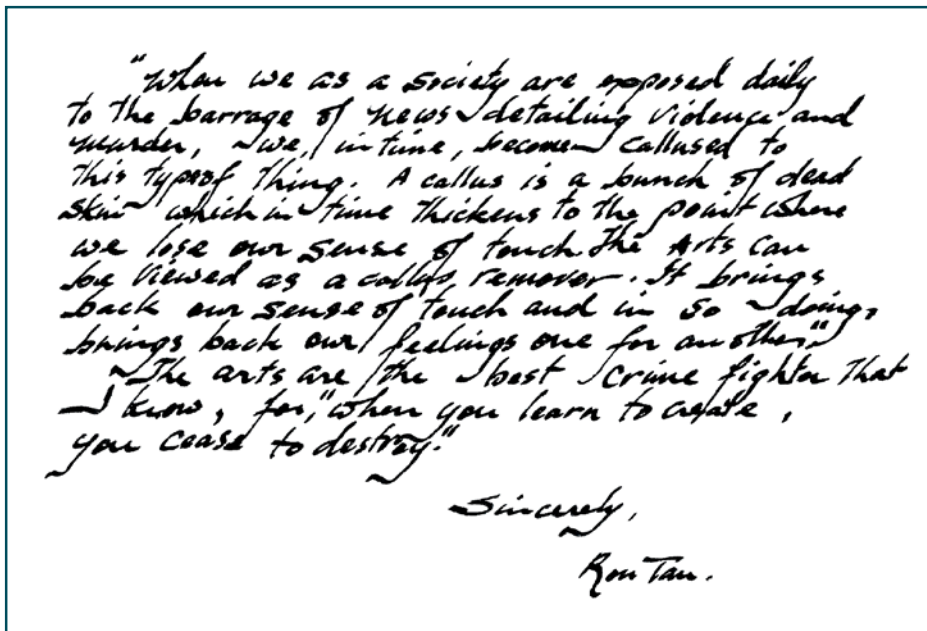 "When we as a society are exposed daily
to the barrage of news detailing violence and
murder, we, in time, become callused to
this type of thing. A callus is a bunch of dead
skin which in time thickens to the point where
we lose our sense of touch. The Arts can
be viewed as a callus remover. It brings
back our sense of touch and in so doing,
brings back our feelings one for another."
The arts are the best crime fighter that
I know, for, "when you learn to create,
you cease to destroy."
Sincerely,
Ron Tan.